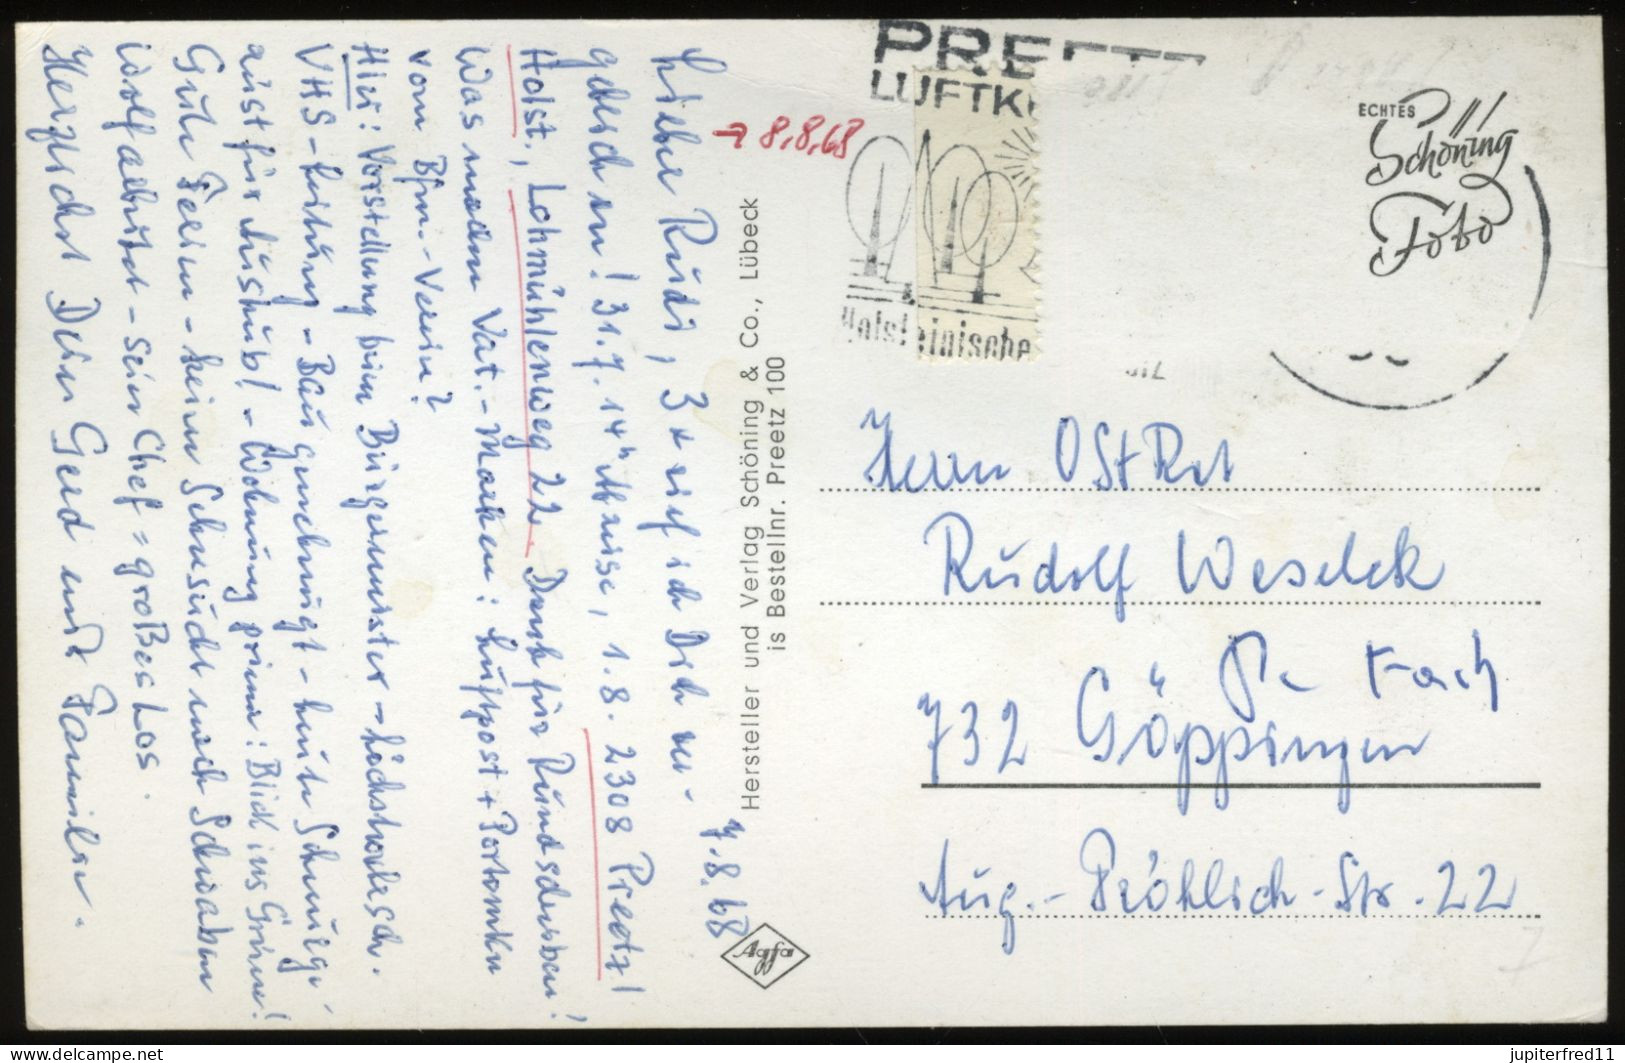 7.8.68
Lieber Rudi, 3 x rief ich Dich ver-
geblich an! 31.7. 14h Abreise, 1.8. 2308 Preetz/
Holst., Lohmühlenweg 22. Dank für Rundschreiben!
Was machen Vat.-Marken: Luftpost + Portomarken
vom Bfm.-Verein?
Hier: Vorstellung beim Bürgermeister
VHS-Leitung - Bau genehmigt - heute
aust für Aushub! - Wohnung prima: Blick ins Grüne!
Gute Ferien - keine Sehnsucht nach Schwaben
Wolf arbeitet - sein Chef = großes Los.
Herzlichst Dein Gerd und Familie.
→ 8.8.68
Hersteller und Verlag Schöning & Co., Lübeck
is Bestellnr. Preetz 100
Agfa
PREETZ
LUFTK
Holsteinische
ECHTES
Schöning
Foto
Herrn OStRat
Rudolf Weselek
Fach
732 Göppingen
Aug.-Fröhlich-Str. 22
7
jupiterfred11
www.delcampe.net